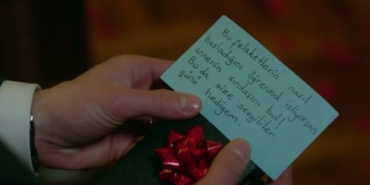 Bu felaketlerin nasıl
başladığını öğrenmek istiyorsan
annenin sandığını bul!
Bu da size sevgililer
günü hediyem.